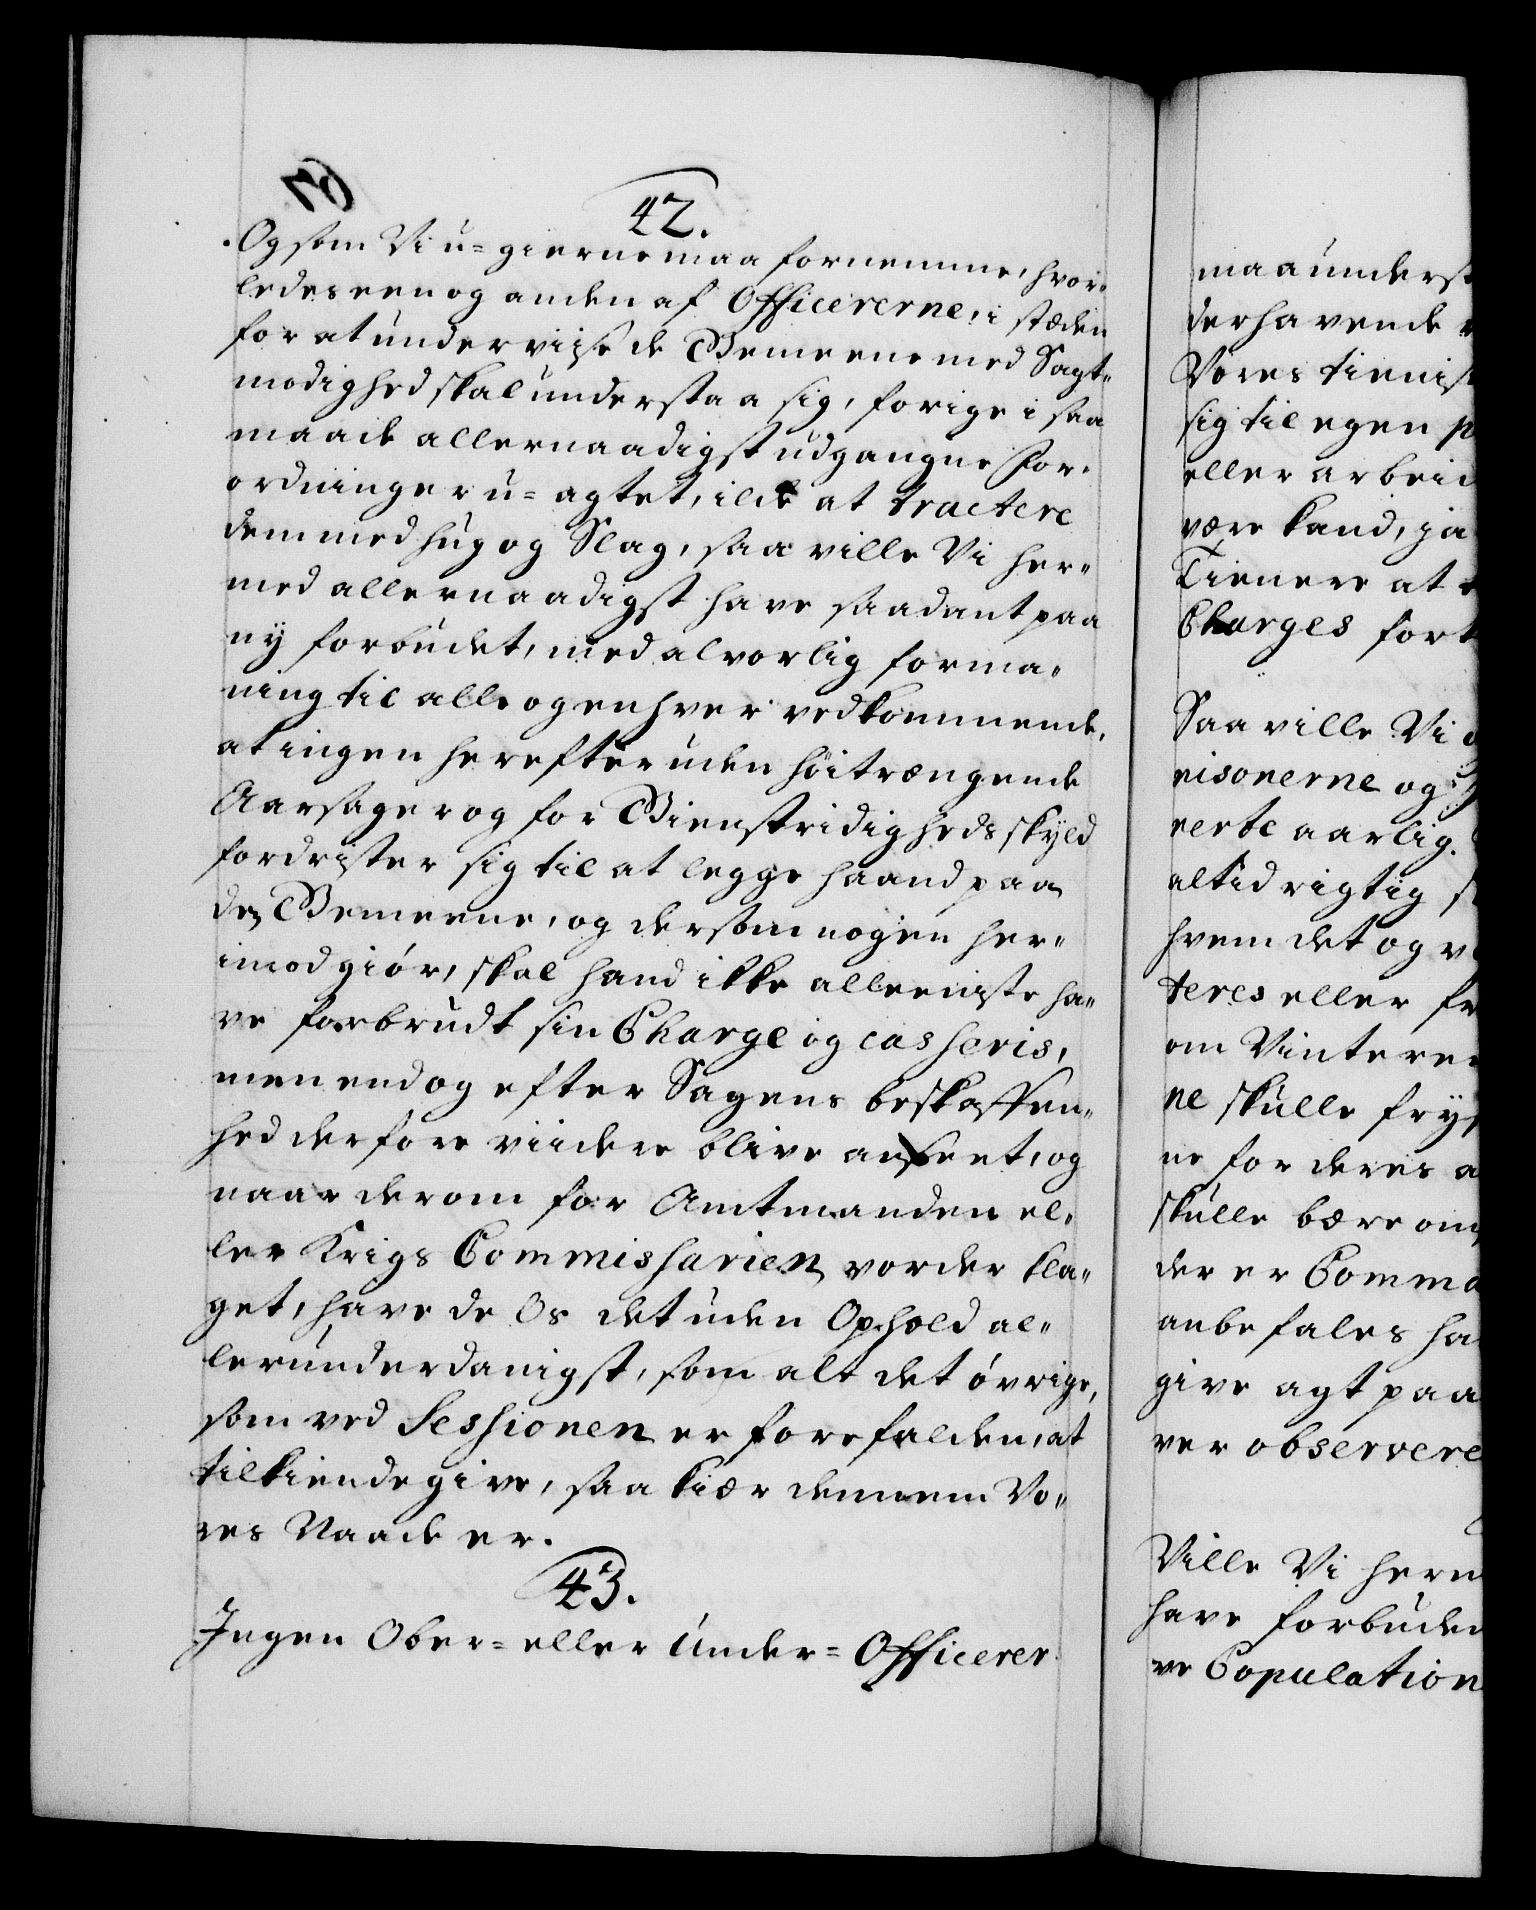 42.
Og som Vi u= gierne maa fornemme, hvor-
ledes een og anden af Officererne, i stæden
for at underviise de Gemeene med Sagt-
modighed skal understaa sig, forige i saa
maade allernaadigst udgangne For-
ordninger u= agtet, ilde at tractere
dem med hug og Slag, saa ville Vi her-
med allernaadigst have saadant paa
ny forbudet, med alvorlig forma-
ning til alle og enhver vedkommende,
at ingen herefter uden høitrængende
Aarsager og for Gienstridigheds skyld
fordrister sig til at legge haand paa
de Gemeene, og dersom nogen her-
imod giór, skal hand ikke alleeniste ha-
ve forbrudt sin Charge og casseris,
men endog efter Sagens beskaffen-
hed derfore viidere blive anseet, og
naar derom for Amtmanden el-
ler Krigs Commissarien vorder kla-
get, have de Os det uden Ophold al-
lerunderdanigst, som alt det óvrige,
som ved Sessionen er forefalden, at
tilkiendegive, saa kiær dennem Vo-
res Naade er.
43.
Ingen Ober= eller Under= Officerer
maa underst
derhavende
Vores tienist
sig til egen p
eller arbeid
være kand, ja
Tienere at
Charges fort
Saa ville Vi
nisonerne og
rerte aarlig.
altid rigtig s
hvem det og v
teres eller fr
om Vinteren
ne skulle frys
ne for deres a
skulle bære om
der er Comma
anbefales ha
give agt paa
ver observere
Ville Vi herm
have forbuden
ve Copulation